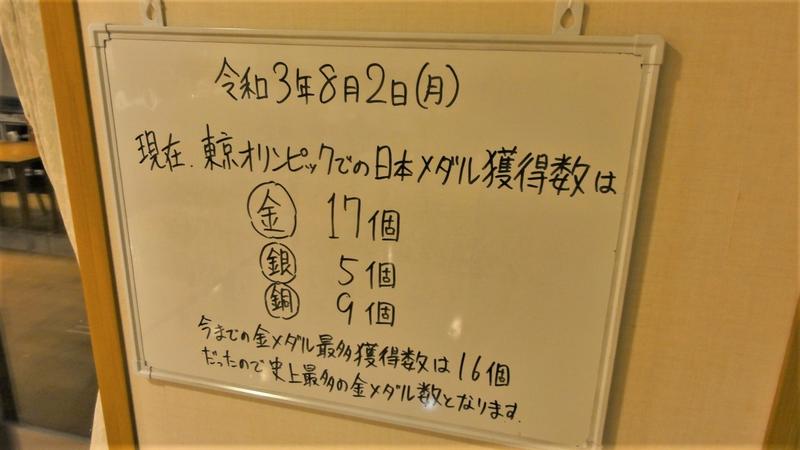 令和3年8月2日(月)
現在、東京オリンピックでの日本メダル獲得数は
金 17個
銀 5個
銅 9個
今までの金メダル最多獲得数は16個
だったので史上最多の金メダル数となります。